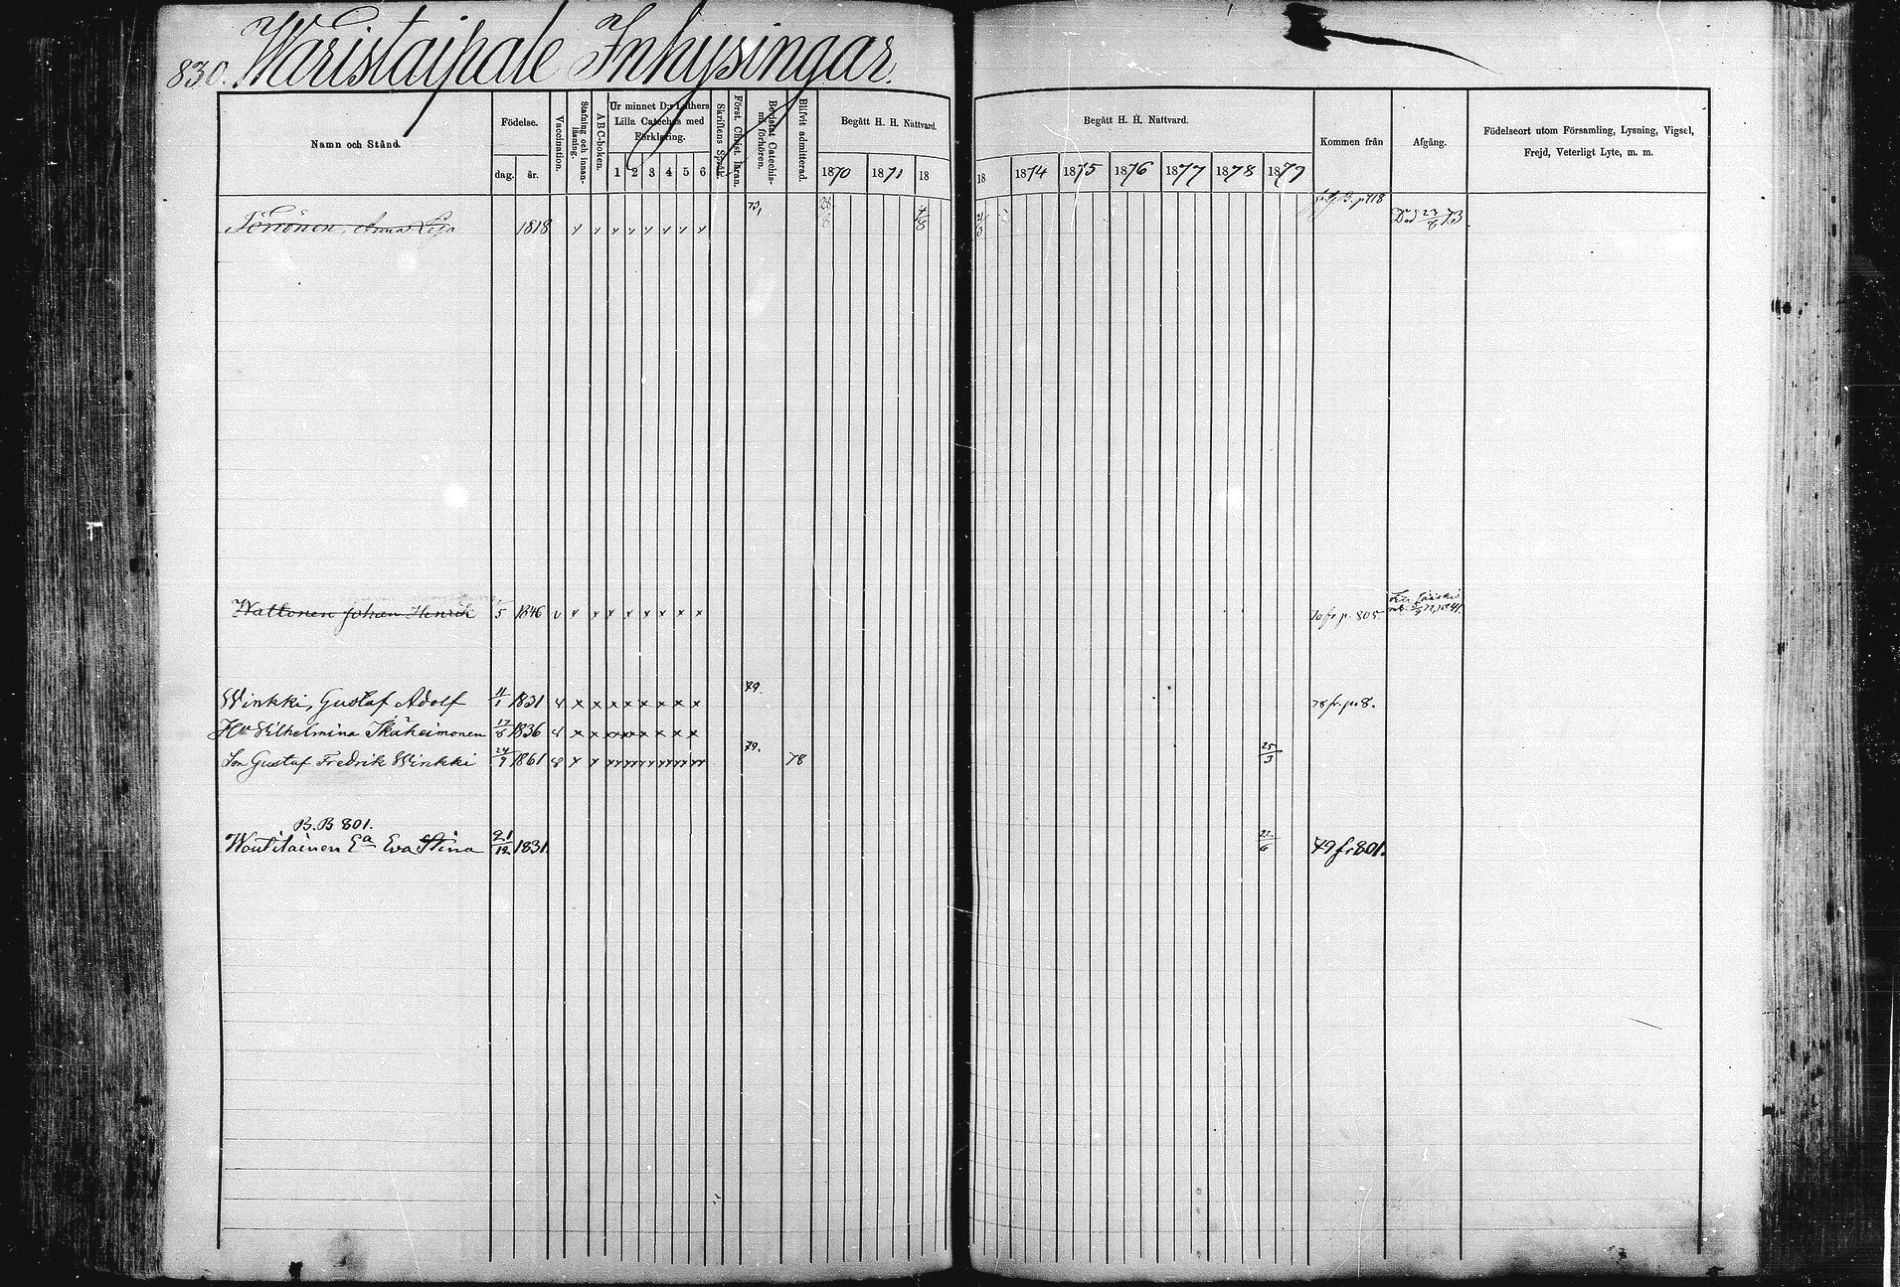 830. Waristaipale Inhysingar.
Namn och Stånd.
Födelse.
dag. år.
Vaccination.
Stafning och innanläsning.
ABC-boken.
Ur minnet D:r Luthers
Lilla Catechis med
Förklaring.
1 2 3 4 5 6
Skriftens Språk.
Först. Christ. läran.
Bevistat Catechismiförhören.
Blifvit admitterad.
Begått H. H. Nattvard.
1870 1871 18
Begått H. H. Nattvard.
18 1874 1875 1876 1877 1878 1879
Kommen från
Afgång.
Födelseort utom Församling, Lysning, Vigsel,
Frejd, Veterligt Lyte, m. m.
Törrönen, Anna Lisa 1818 73,
Wattonen Johan Henrik 1846 fr. p. 805.
Winkki, Gustaf Adolf 11/1 1831 79. 78 fr. p. 8.
Hu Vilhelmina Ikäheimonen 17/6 1836
Son Gustaf Fredrik Winkki 24/9 1861 79. 78 25/3
B.B 801.
Woutilainen Ea Eva Stina 21/12 1831. 22/6 79 fr 801.